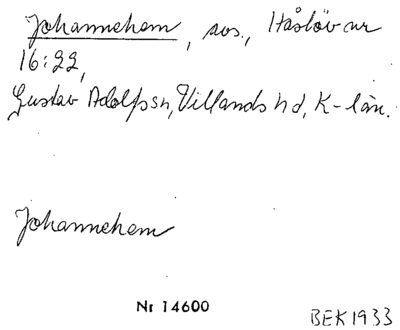 Johannehem, sos., Håslöv nr
16:22,
Gustav Adolfs sn, Villands hd, K-län.
Johannehem
Nr 14600
BEK 1933